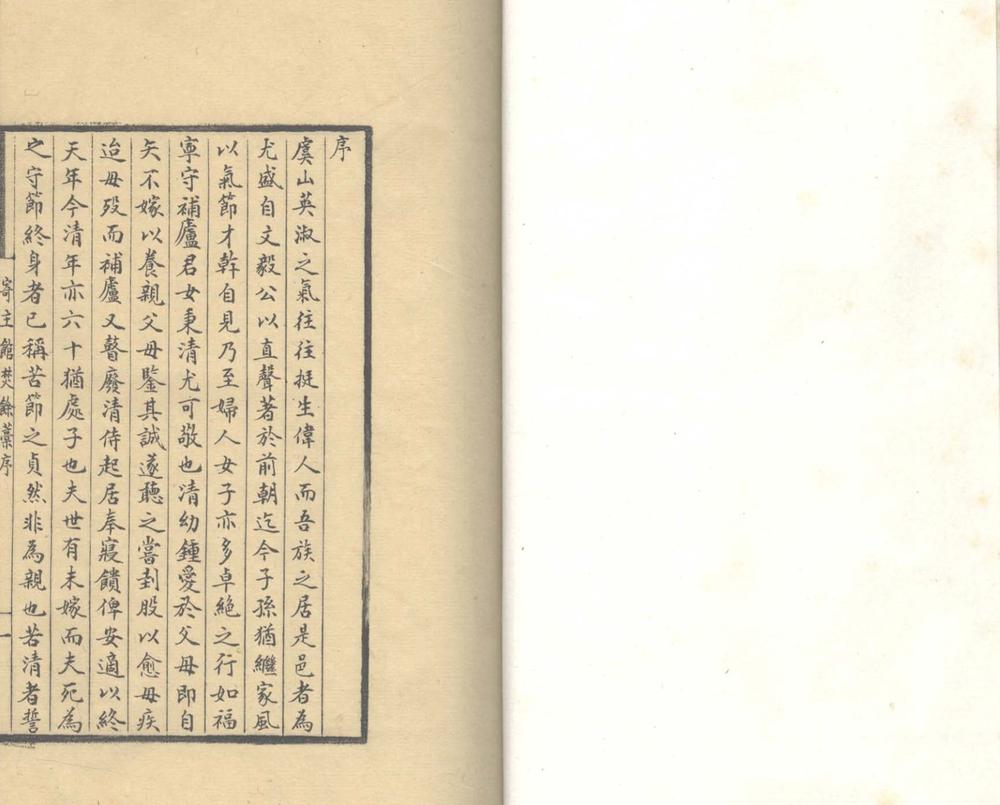 序
虞山英淑之氣往往挺生偉人而吾族之居是邑者為
尤盛自文毅公以直聲著於前朝迄今子孫猶繼家風
以氣節才幹自見乃至婦人女子亦多卓絶之行如福
寕守補廬君女秉清尤可敬也清幼鍾愛於父母即自
矢不嫁以養親父母鑒其誠遂聽之嘗刲股以愈母疾
迨母歿而補廬又瞽廢清侍起居奉寢饋俾安適以終
天年今清年亦六十猶處子也夫世有未嫁而夫死為
之守節終身者已稱苦節之貞然非為親也若清者誓
寄主館焚餘藁序
一